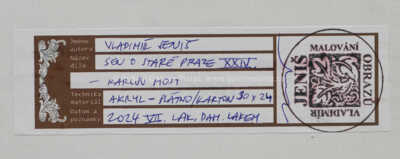 Jméno autora VLADIMÍR JENIŠ
Název díla SEN O STARÉ PRAZE XXIV.
- KARLŮV MOST
Technika materiál AKRYL - PLÁTNO/KARTON 30 x 24
Datum a poznámky 2024 VII. LAK. DAM. LAKEM
MALOVÁNÍ OBRAZŮ
VLADIMÍR JENIŠ